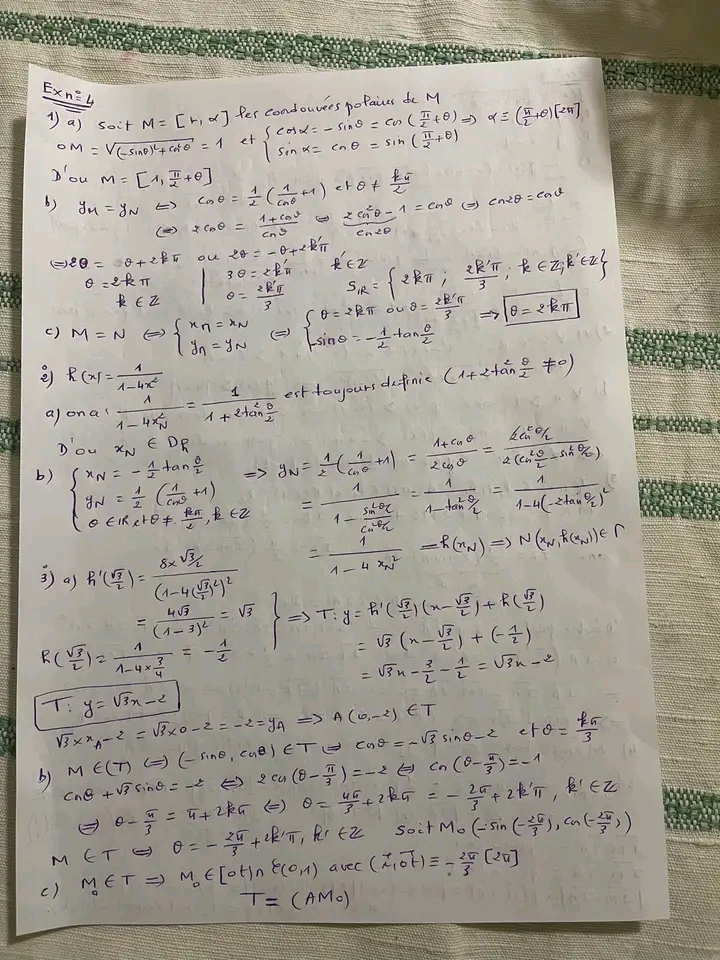 Ex n°=4
1) a) Soit M = [r, α] les coordonnées polaires de M
OM = √((-sinθ)²+cos²θ) = 1 et { cosα = -sinθ = cos(π/2+θ) ⇒ α ≡ (π/2+θ)[2π]
sinα = cosθ = sin(π/2+θ)
D'où M = [1, π/2+θ]
b) y_M = y_N ⇔ cosθ = 1/2 (1/cosθ +1) et θ ≠ kπ/2
⇔ 2cosθ = (1+cosθ)/cosθ ⇔ 2cos²θ - 1 = cosθ ⇔ cos2θ = cosθ
cos2θ
⇔ 2θ = θ+2kπ ou 2θ = -θ+2k'π
θ = 2kπ | 3θ = 2k'π k'∈ℤ
k ∈ ℤ | θ = 2k'π/3 S_IR = { 2kπ ; 2k'π/3 ; k ∈ ℤ; k'∈ℤ }
c) M = N ⇔ { x_M = x_N ⇔ { θ = 2kπ ou θ = 2k'π/3 ⇒ θ = 2kπ
y_M = y_N -sinθ = -1/2 tan θ/2
2) h(x) = 1/(1-4x²)
a) on a : 1/(1-4x_N²) = 1/(1+2tan² θ/2) est toujours définie (1+2tan² θ/2 ≠ 0)
D'où x_N ∈ Dh
b) { x_N = -1/2 tan θ/2 ⇒ y_N = 1/2 (1/cosθ +1) = (1+cosθ)/(2cosθ) = 2cos² θ/2 / (2(cos² θ/2 - sin² θ/2))
y_N = 1/2 (1/cosθ +1)
θ ∈ IR et θ ≠ kπ/2, k ∈ ℤ = 1/(1 - (sin² θ/2)/(cos² θ/2)) = 1/(1-tan² θ/2) = 1/(1-4(-2tan θ/2)²)
= 1/(1-4x_N²) = h(x_N) ⇒ N(x_N, h(x_N)) ∈ Γ
3) a) h'(√3/2) = (8×√3/2)/(1-4(√3/2)²)²
= 4√3/(1-3)² = √3 } ⇒ T: y = h'(√3/2)(x-√3/2) + h(√3/2)
h(√3/2) = 1/(1-4×3/4) = -1/2 = √3 (x-√3/2) + (-1/2)
= √3x - 3/2 - 1/2 = √3x - 2
T: y = √3x-2
√3×x_A-2 = √3×0-2 = -2 = y_A ⇒ A(0,-2) ∈ T
b) M∈(T) ⇔ (-sinθ, cosθ) ∈ T ⇔ cosθ = -√3 sinθ-2 et θ ≠ kπ/3
cosθ + √3 sinθ = -2 ⇔ 2cos(θ-π/3) = -2 ⇔ cos(θ-π/3) = -1
⇔ θ-π/3 = π+2kπ ⇔ θ = 4π/3+2kπ = -2π/3+2k'π, k' ∈ ℤ
M ∈ T ⇔ θ = -2π/3+2k'π, k' ∈ ℤ soit M₀(-sin(-2π/3), cos(-2π/3))
c) M₀∈T ⇒ M₀∈[ot)∩ℰ(0,1) avec (i, ot) ≡ -2π/3 [2π]
T = (AM₀)